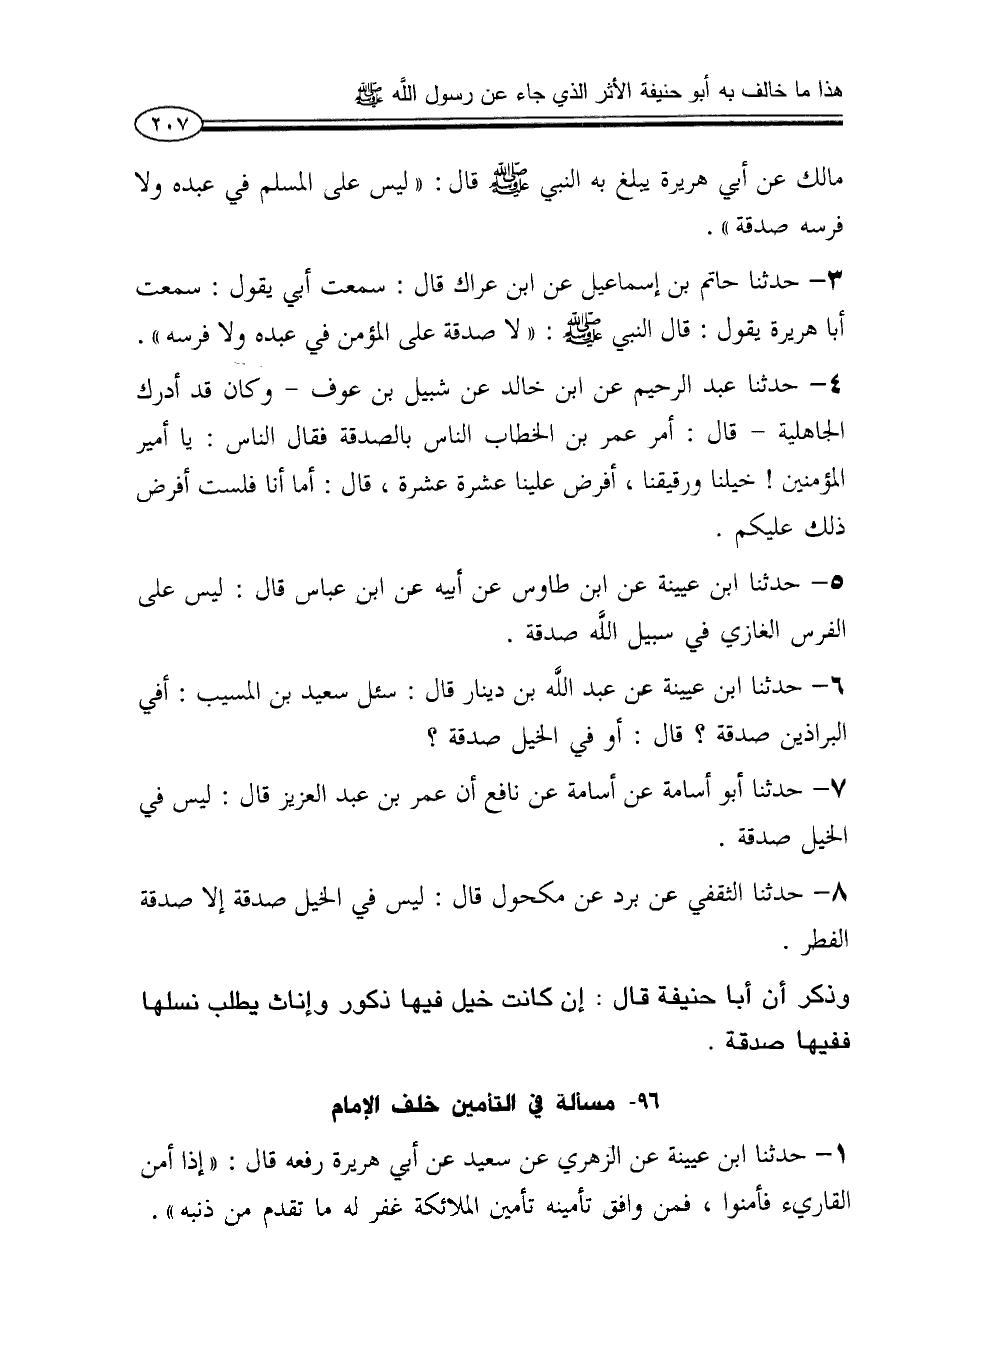 هذا ما خالف به أبو حنيفة الأثر الذي جاء عن رسول اللَّه ﷺ
٢٠٧
مالك عن أبي هريرة يبلغ به النبي ﷺ قال : « ليس على المسلم في عبده ولا
فرسه صدقة » .
٣- حدثنا حاتم بن إسماعيل عن ابن عراك قال : سمعت أبي يقول : سمعت
أبا هريرة يقول : قال النبي ﷺ : « لا صدقة على المؤمن في عبده ولا فرسه » .
٤- حدثنا عبد الرحيم عن ابن خالد عن شبيل بن عوف - وكان قد أدرك
الجاهلية - قال : أمر عمر بن الخطاب الناس بالصدقة فقال الناس : يا أمير
المؤمنين ! خيلنا ورقيقنا ، أفرض علينا عشرة عشرة ، قال : أما أنا فلست أفرض
ذلك عليكم .
٥- حدثنا ابن عيينة عن ابن طاوس عن أبيه عن ابن عباس قال : ليس على
الفرس الغازي في سبيل اللَّه صدقة .
٦- حدثنا ابن عيينة عن عبد اللَّه بن دينار قال : سئل سعيد بن المسيب : أفي
البراذين صدقة ؟ قال : أو في الخيل صدقة ؟
٧- حدثنا أبو أسامة عن أسامة عن نافع أن عمر بن عبد العزيز قال : ليس في
الخيل صدقة .
٨- حدثنا الثقفي عن برد عن مكحول قال : ليس في الخيل صدقة إلا صدقة
الفطر .
وذكر أن أبا حنيفة قال : إن كانت خيل فيها ذكور وإناث يطلب نسلها
ففيها صدقة .
٩٦- مسألة في التأمين خلف الإمام
١- حدثنا ابن عيينة عن الزهري عن سعيد عن أبي هريرة رفعه قال : « إذا أمن
القاريء فأمنوا ، فمن وافق تأمينه تأمين الملائكة غفر له ما تقدم من ذنبه » .